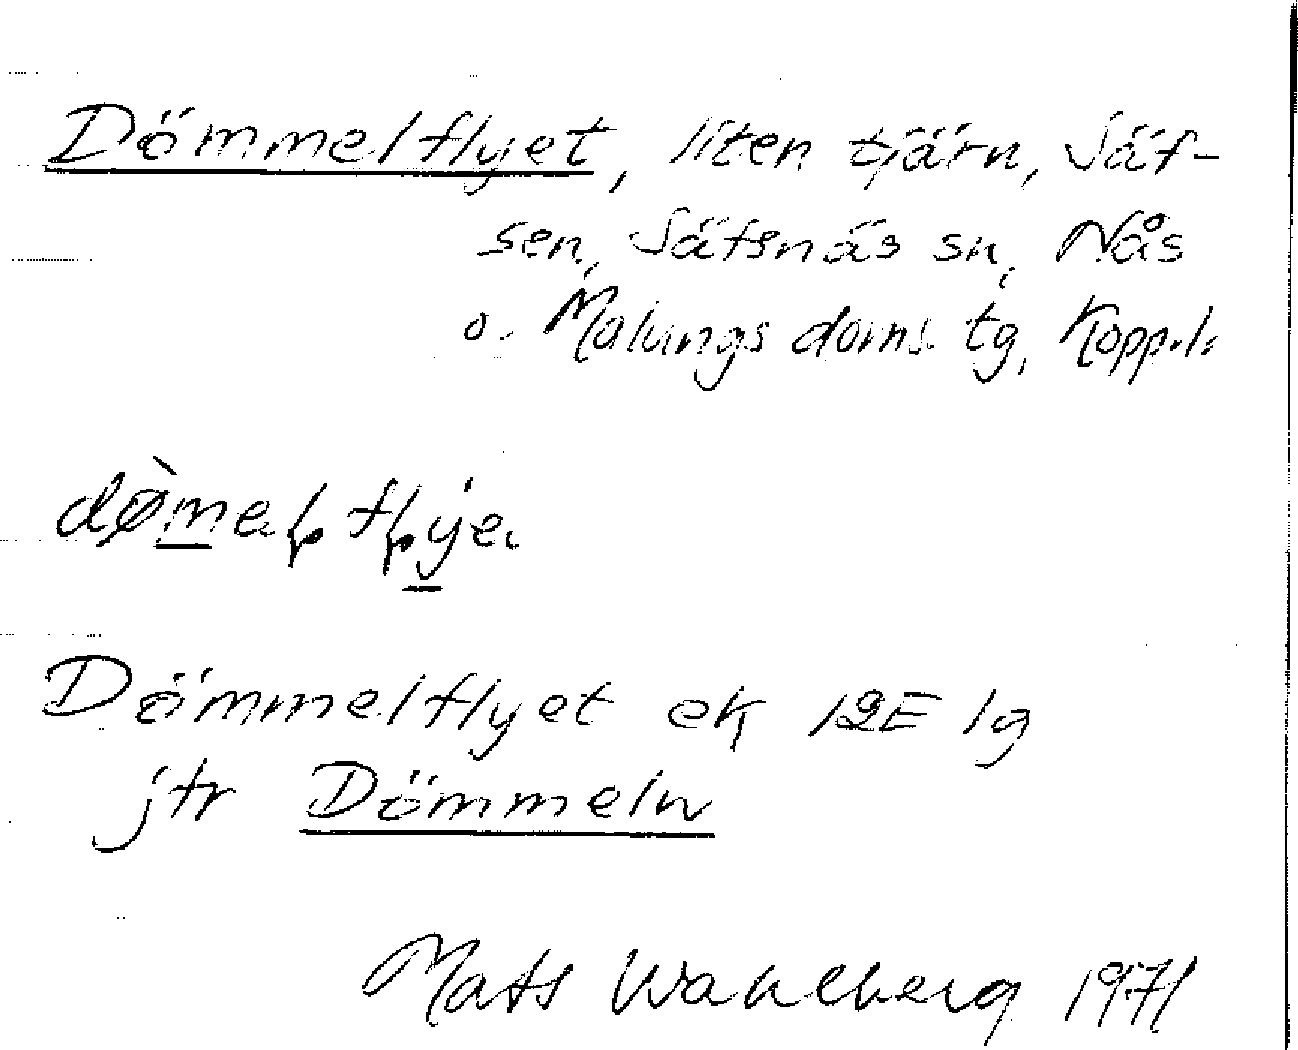 Dömmelflyet, liten tjärn, Säf-
sen, Säfsnäs sn, Nås
o. Malungs doms. tg, Kopp.l.
Dömmelflyet ek 12E 1g
jfr Dömmeln
Mats Wahlberg 1971